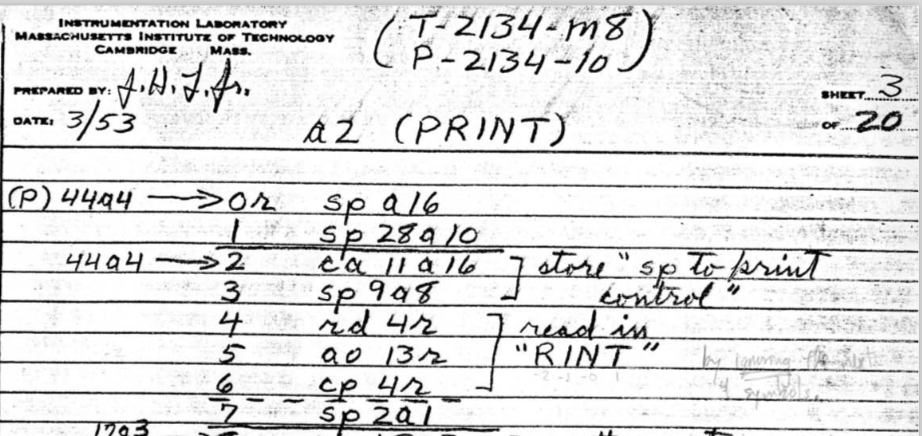 INSTRUMENTATION LABORATORY
MASSACHUSETTS INSTITUTE OF TECHNOLOGY
CAMBRIDGE MASS.
(T-2134-m8
P-2134-10)
PREPARED BY: J.H.L.Jr.
DATE: 3/53
SHEET 3
OF 20
a2 (PRINT)
(P) 44a4 → 0r sp a16
1 sp 28a10
44a4 → 2 ca 11a16 ] store "sp to print
3 sp 9a8 control"
4 rd 4r ] read in
5 ao 13r "RINT"
-2 -1 -0 1
6 cp 4r
by ignoring the next
4 symbols.
7 sp 2a1
17a3